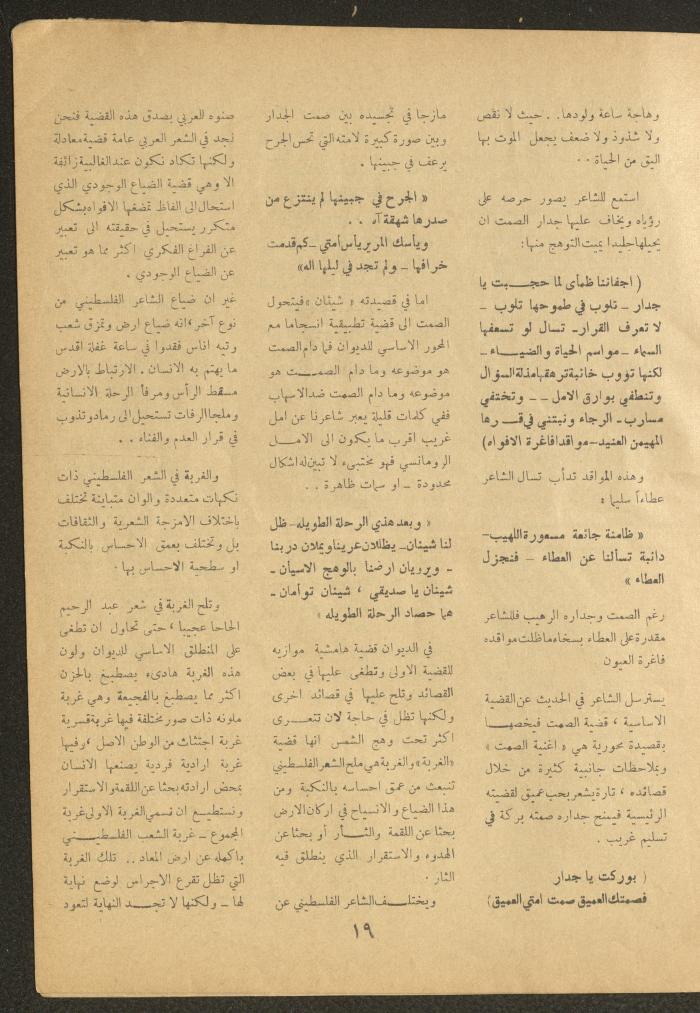 وهاجة ساعة ولودها.. حيث لا نقص
ولا شذوذ ولا ضعف يجعل الموت بها
اليق من الحياة ..
استمع للشاعر يصور حرصه على
رؤياه ويخاف عليها جدار الصمت ان
يحيلها جليدا يميت التوهج منها:
( اجفاننا ظمأى لما حجبت يا
جدار - تلوب في طموحها تلوب -
لا تعرف القرار- تسال لو تسعفها
السماء - مواسم الحياة والضياء -
لكنها تؤوب خائبة ترهقها مذلة السؤال
وتنطفي بوارق الامل - - وتختفي
مسارب - الرجاء ونبتني في قرارها
المهيمن العنيد - مواقدا فاغرة الافواه)
وهذه المواقد تدأب تسال الشاعر
عطاءاً سليما :
« ظامئة جائعة مسعورة اللهيب-
دائبة تسألنا عن العطاء - فنجزل
العطاء »
رغم الصمت وجداره الرهيب فللشاعر
مقدرة على العطاء بسخاء ماظلت مواقده
فاغرة العيون
يسترسل الشاعر في الحديث عن القضية
الاساسية ، قضية الصمت فيخصها
بقصيدة محورية هي « اغنية الصمت »
وبملاحظات جانبية كثيرة من خلال
قصائده ، تارة يشعر بحب عميق لقضيته
الرئيسية فيمنح جداره صمته بركة في
تسليم غريب .
( بوركت يا جدار
فصمتك العميق صمت امتي العميق)
مازجا في تجسيده بين صمت الجدار
وبين صورة كبيرة لامته التي تحس الجرح
يرعف في جبينها .
« الجرح في جبينها لم ينتزع من
صدرها شهقة آه . .
وياسك المرير يأس أمتي - كم قدمت
خرافها - ولم تجد في ليلها اله»
اما في قصيدته « شيئان » فيتحول
الصمت الى قضية تطبيقية انسجاما مع
المحور الاساسي للديوان فما دام الصمت
هو موضوعه وما دام الصمت هو
موضوعه وما دام الصمت ضد الاسهاب
ففي كلمات قليلة يعبر شاعرنا عن امل
غريب اقرب ما يكون الى الامل
الرومانسي فهو مختبىء لا تبين له اشكال
محدودة - او سمات ظاهرة . .
« وبعد هذي الرحلة الطويله - ظل
لنا شيئان- يظللان عرينا ويملان دربنا
- ويرويان ارضنا بالوهج الاسيان -
شيئان يا صديقي ، شيئان توأمان -
هما حصاد الرحلة الطويله »
في الديوان قضية هامشية موازيه
للقضية الاولى وتطغى عليها في بعض
القصائد وتلح عليها في قصائد اخرى
ولكنها تظل في حاجة لان تتعرى
اكثر تحت وهج الشمس انها قضية
«الغربة» والغربة هي ملح الشعر الفلسطيني
تنبعث من عمق احساسه بالنكبة ومن
هذا الضياع والانسياح في اركان الارض
بحثا عن اللقمة والثأر أو بحثا عن
الهدوء والاستقرار الذي ينطلق فيه
الثار .
ويختلف الشاعر الفلسطيني عن
صنوه العربي بصدق هذه القضية فنحن
نجد في الشعر العربي عامة قضية معادلة
ولكنها تكاد تكون عند الغالبية زائفة
الا وهي قضية الضياع الوجودي الذي
استحال الى الفاظ تمضغها الافواه بشكل
متكرر يستحيل في حقيقته الى تعبير
عن الفراغ الفكري اكثر مما هو تعبير
عن الضياع الوجودي .
غير ان ضياع الشاعر الفلسطيني من
نوع آخر ، انه ضياع ارض وتمزق شعب
وتيه اناس فقدوا في ساعة غفلة اقدس
ما يهتم به الانسان . الارتباط بالارض
مسقط الرأس ومرفأ الرحلة الانسانية
وملجا الرفات تستحيل الى رماد وتذوب
في قرار العدم والفناء . .
والغربة في الشعر الفلسطيني ذات
نكهات متعددة والوان متباينة تختلف
باختلاف الامزجة الشعرية والثقافات
بل وتختلف بعمق الاحساس بالنكبة
او سطحية الاحساس بها .
وتلح الغربة في شعر عبد الرحيم
الحاحا عجيبا ، حتى تحاول ان تطغى
على المنطلق الاساسي للديوان ولون
هذه الغربة هادىء يصطبغ بالحزن
اكثر مما يصطبغ بالفجيعة وهي غربة
ملونه ذات صور مختلفة فيها غربة قسرية
غربة اجتثاث من الوطن الاصل ، وفيها
غربة ارادية فردية يصنعها الانسان
بمحض ارادته بحثا عن اللقمة والاستقرار
ونستطيع ان نسمي الغربة الاولى غربة
المجموع - غربة الشعب الفلسطيني
باكمله عن ارض المعاد .. تلك الغربة
التي تظل تقرع الاجراس لوضع نهاية
لها - ولكنها لا تجد النهاية لتعود
١٩